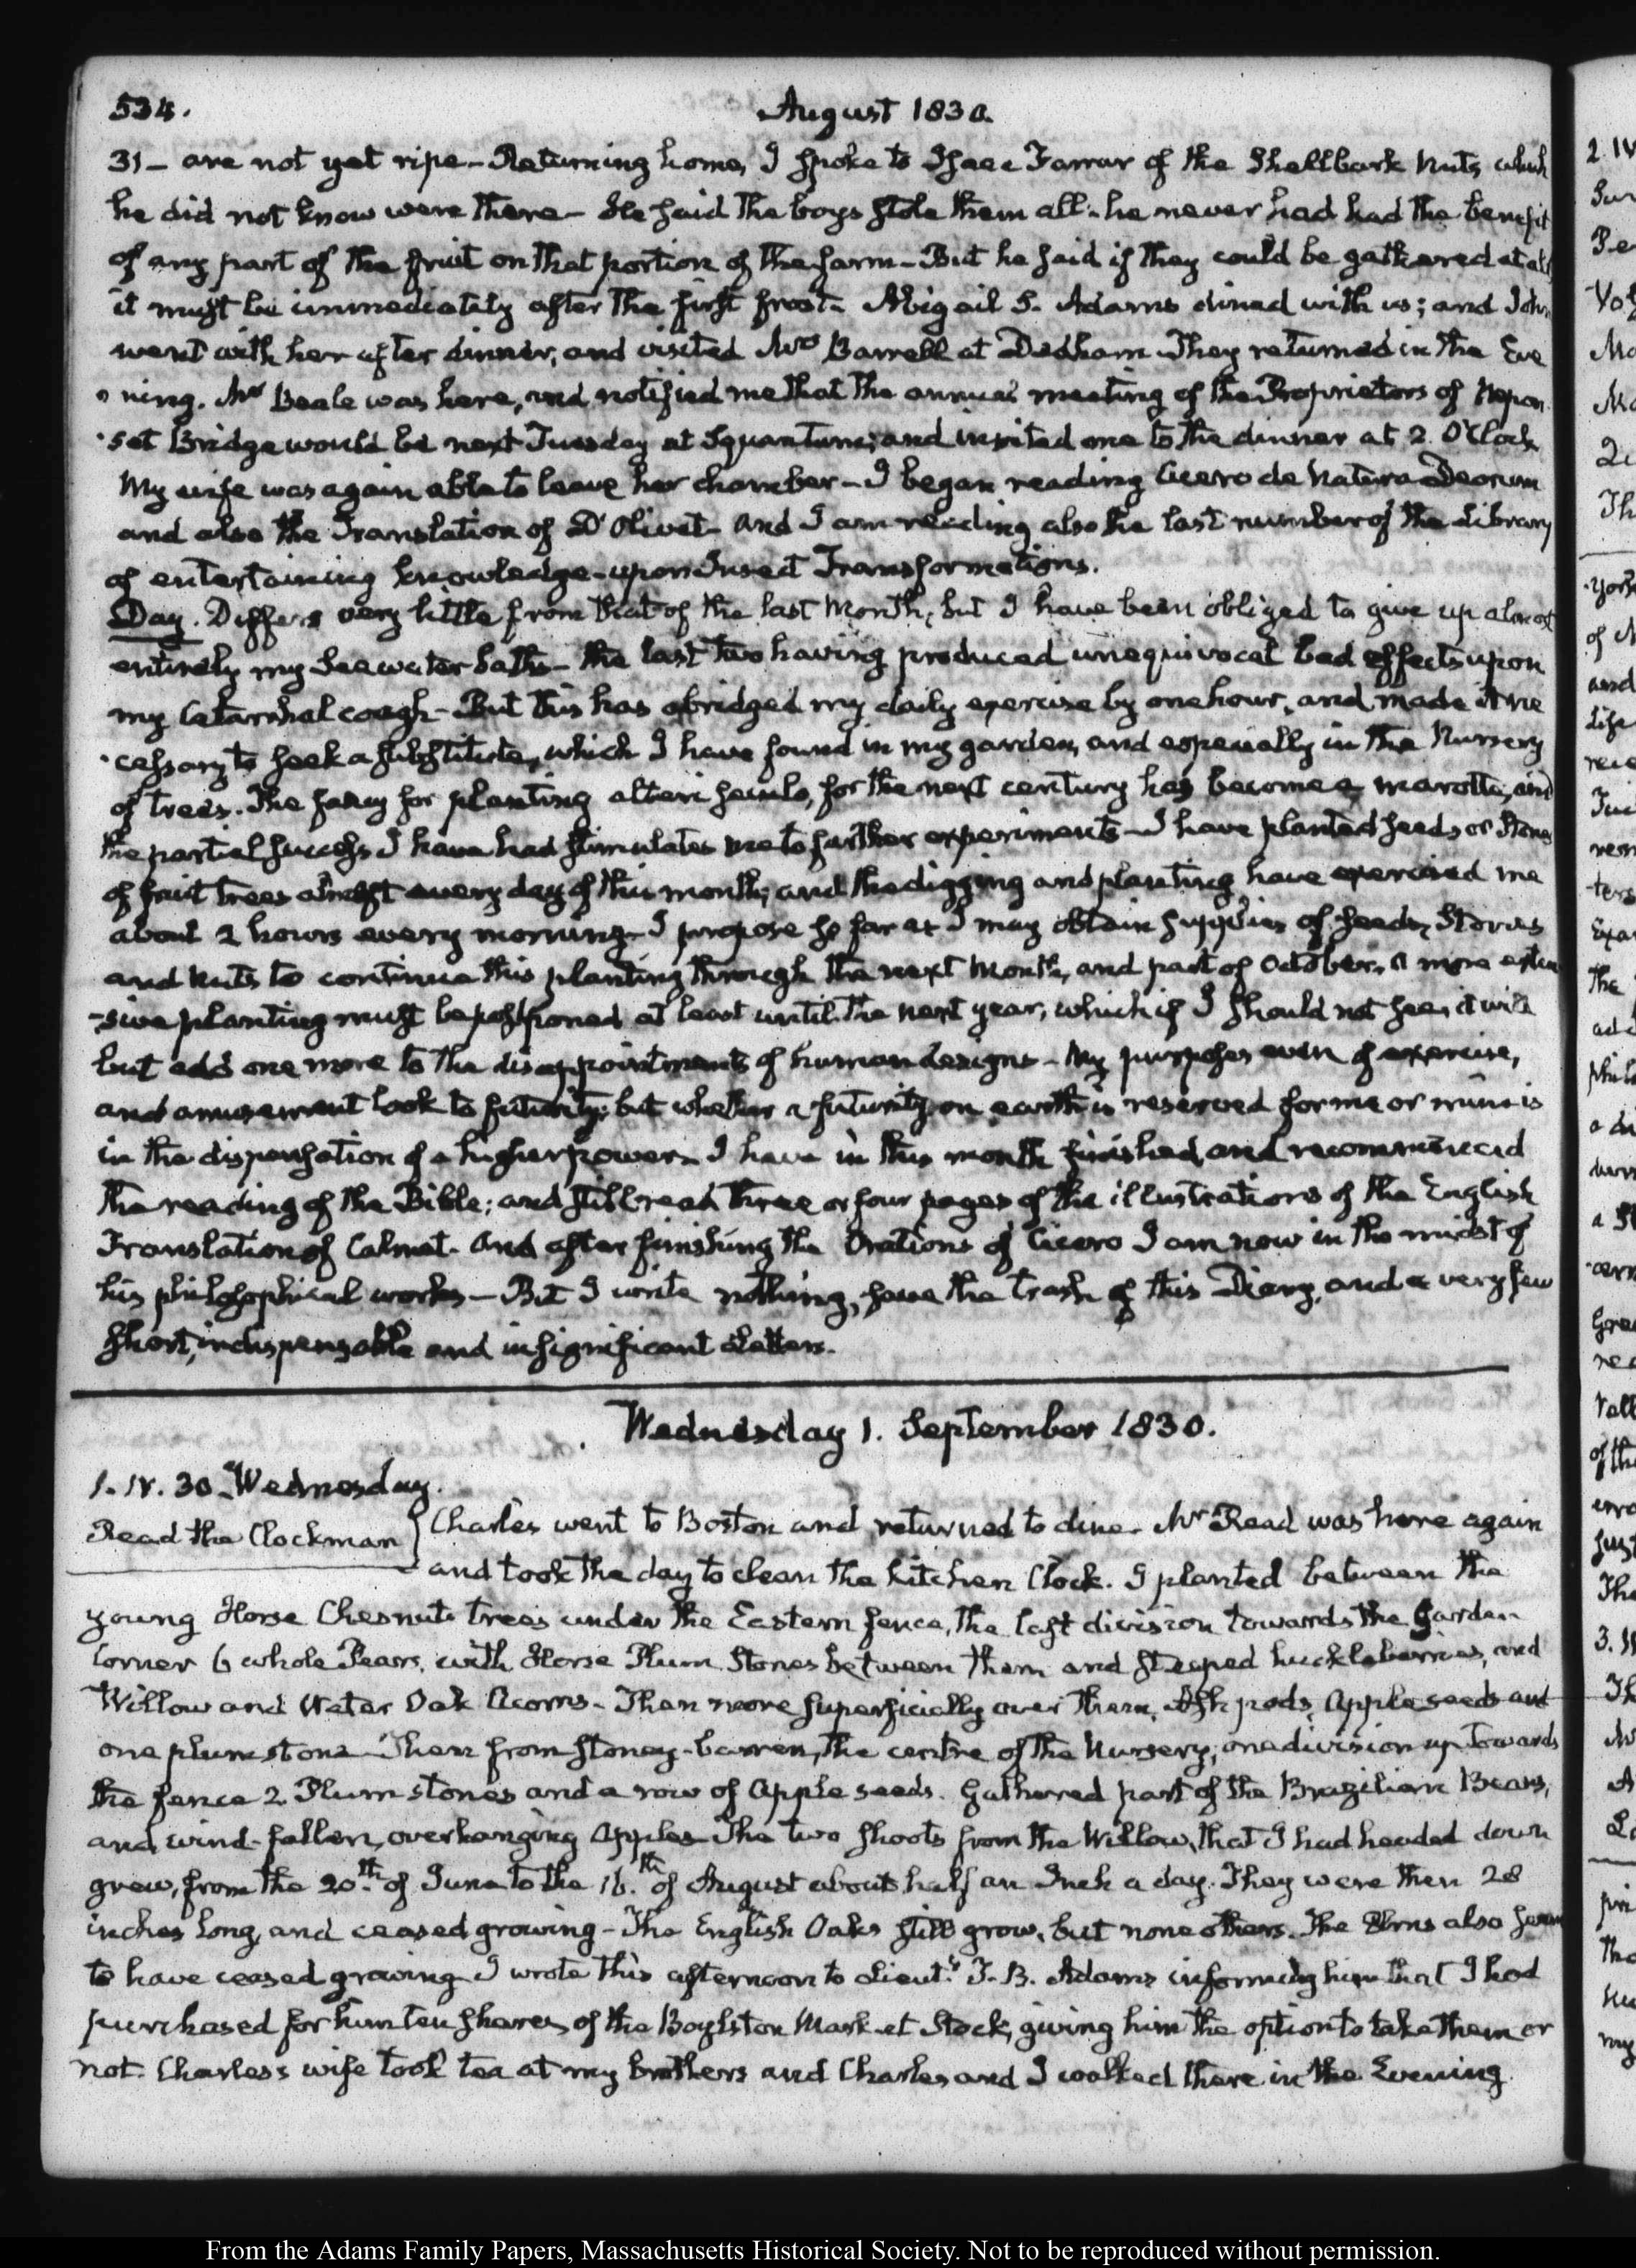 534.
August 1830.
31 - are not yet ripe - Returning home, I spoke to Isaac Farrar of the Shellbark Nuts which
he did not know were there - He said the boys stole them all - he never had had the benefit
of any part of the fruit on that portion of the farm - But he said if they could be gathered at all
it must be immediately after the first frost. Abigail S. Adams dined with us; and John
went with her after dinner, and visited Mrs Barrell at Dedham. They returned in the Eve
ning. Mr Beale was here, and notified me that the annual meeting of the Proprietors of Nepon
set Bridge would be next Tuesday at Squantum; and invited me to the dinner at 2. O'Clock
My wife was again able to leave her chamber - I began reading Cicero de Natura Deorum
and also the Translation of D'Olivet - And I am reading also the last number of the Library
of entertaining knowledge - upon Insect Transformations.
Day. Differs very little from that of the last Month; but I have been obliged to give up almost
entirely my Sea water baths - the last two having produced unequivocal bad effects upon
my Catarrhal cough - But this has abridged my daily exercise by one hour, and made it ne
cessary to seek a substitute, which I have found in my garden, and especially in the Nursery
of trees. The fancy for planting alteri seculo, for the next century has become a marotte, and
the partial success I have had stimulates me to further experiments - I have planted seeds or Stones
of fruit trees almost every day of this month; and the digging and planting have exercised me
about 2 hours every morning - I propose so far as I may obtain supplies of seeds, Stones
and nuts to continue this planting through the next Month, and part of October. A more exten
-sive planting must be postponed at least until the next year, which if I should not see, it will
but add one more to the disappointments of human designs - My purposes even of exercise,
and amusement look to futurity; but whether a futurity on earth is reserved for me or mine is
in the dispensation of a higher power. I have in this month finished, and recommenced
the reading of the Bible; and still read three or four pages of the illustrations of the English
Translation of Calmet. And after finishing the Orations of Cicero I am now in the midst of
his philosophical works - But I write nothing, save the trash of this Diary, and a very few
short, indispensable and insignificant Letters.
Wednesday 1. September 1830.
1. IX. 30. Wednesday.
Read the Clockman
Charles went to Boston and returned to dine. Mr Read was here again
and took the day to clean the kitchen Clock. I planted between the
young Horse Chesnut trees under the Eastern fence, the last division towards the Garden
Corner 6 whole Pears, with Horse Plum Stones between them and steeped huckleberries, and
Willow and Water Oak Acorns - Then more superficially over them, Ash pods, Apple seeds and
one plum stone. Then from stoney-barren, the centre of the Nursery, one division up towards
the fence 2 Plum stones and a row of Apple seeds. Gathered part of the Brazilian Beans,
and wind-fallen, overhanging Apples. The two shoots from the Willow, that I had headed down
grew, from the 20th of June to the 16th of August about half an Inch a day. They were then 28
inches long, and ceased growing - The English Oaks still grow, but none others. The Elms also seem
to have ceased growing. I wrote this afternoon to Lieutt. T. B. Adams informing him that I had
purchased for him ten shares of the Boylston Market Stock, giving him the option to take them or
not. Charles's wife took tea at my brothers and Charles and I walked there in the Evening
From the Adams Family Papers, Massachusetts Historical Society. Not to be reproduced without permission.